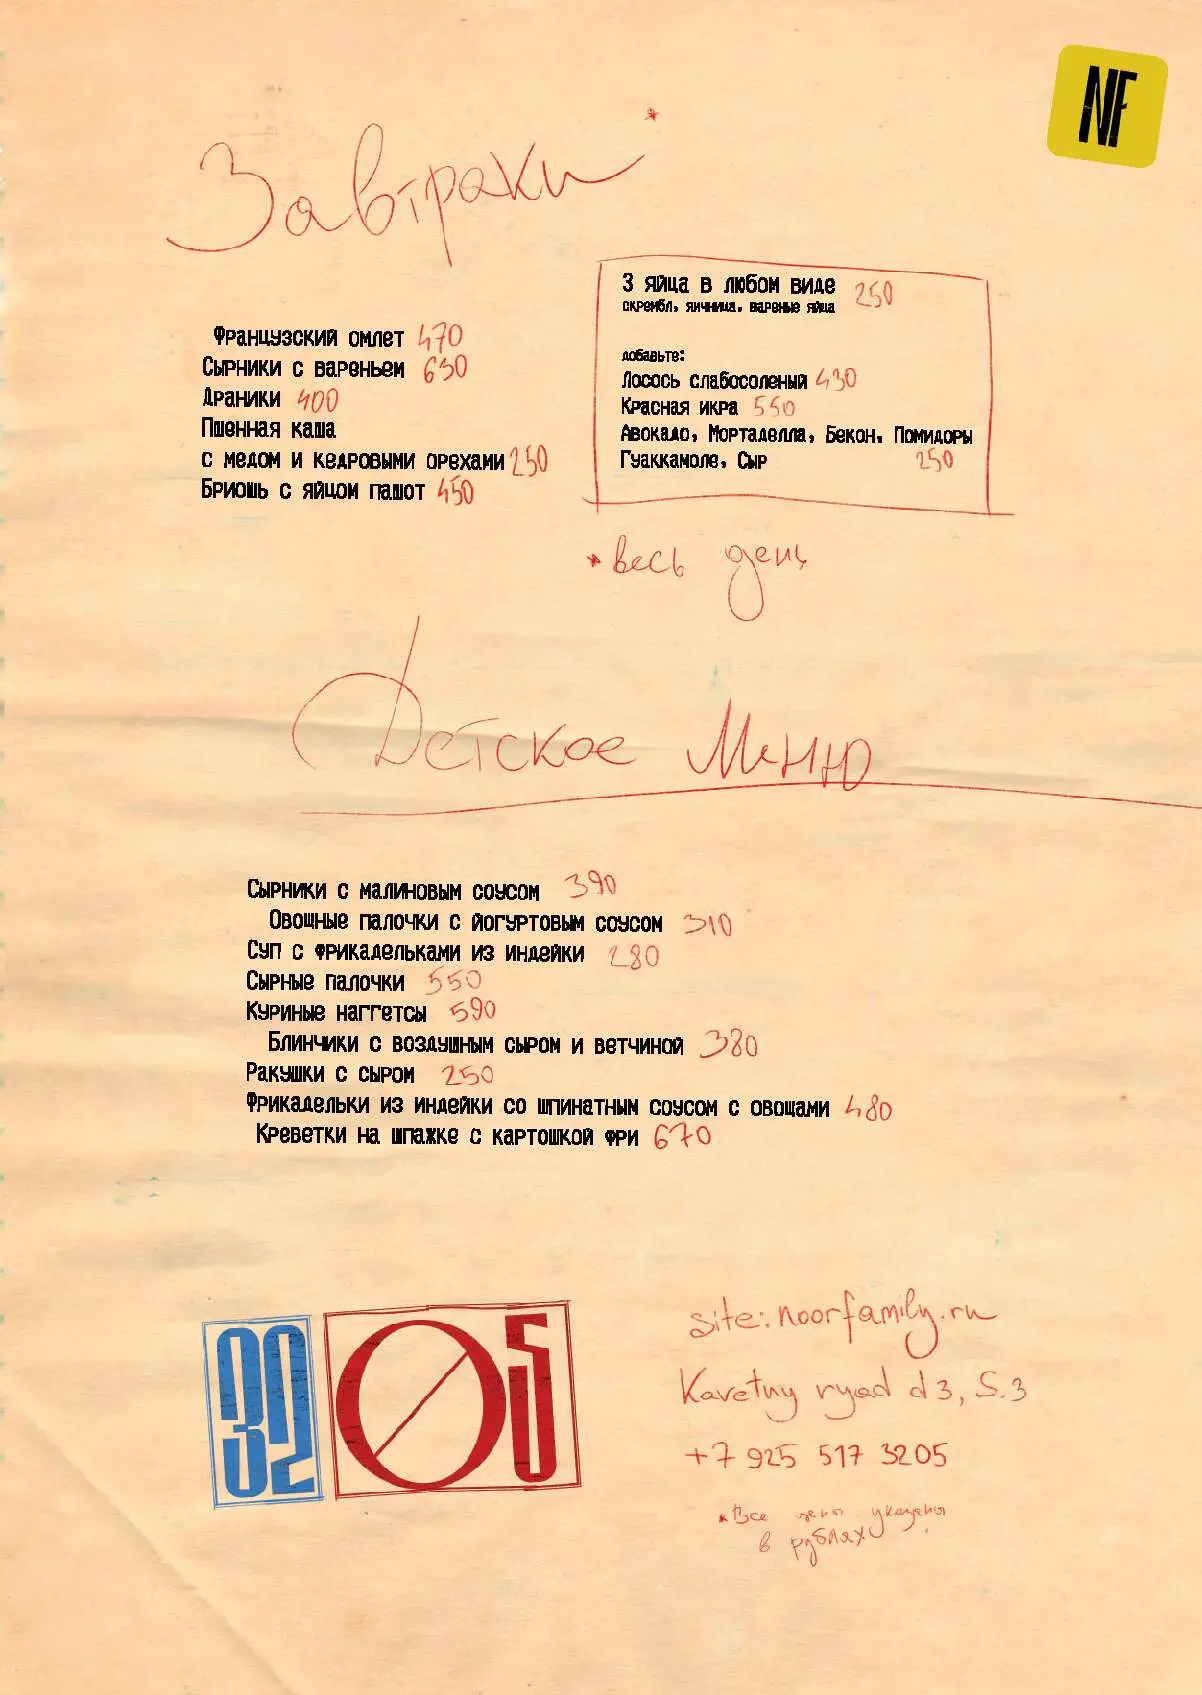 NF
Завтраки*
Французский омлет 470
Сырники с вареньем 650
Драники 400
Пшенная каша
с медом и кедровыми орехами 250
Бриошь с яйцом пашот 450
3 яйца в любом виде 250
скрембл, яичница, вареные яйца
добавьте:
Лосось слабосоленый 430
Красная икра 550
Авокадо, Мортаделла, Бекон, Помидоры
Гуаккамоле, Сыр 250
*весь день
Детское Меню
Сырники с малиновым соусом 390
Овощные палочки с йогуртовым соусом 310
Суп с фрикадельками из индейки 280
Сырные палочки 550
Куриные наггетсы 590
Блинчики с воздушным сыром и ветчиной 380
Ракушки с сыром 250
Фрикадельки из индейки со шпинатным соусом с овощами 480
Креветки на шпажке с картошкой фри 670
32 05
site: noorfamily.ru
Karetny ryad d 3, S.3
+7 925 517 3205
*Все цены указаны
в рублях